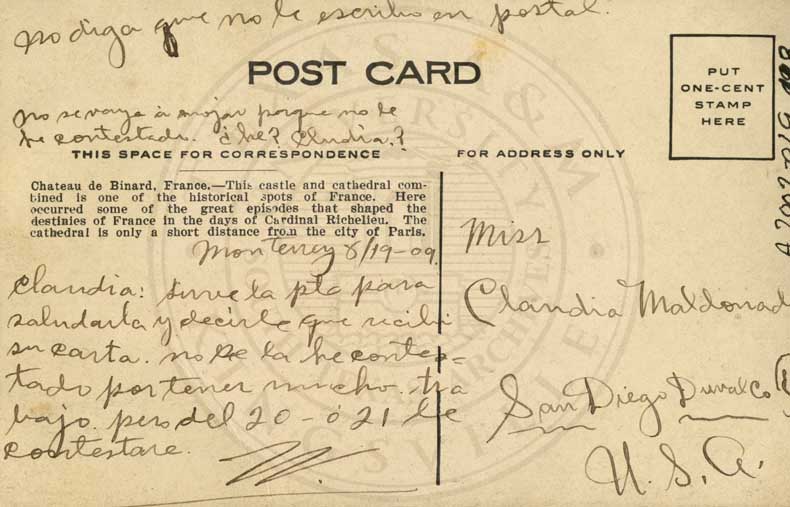 no diga que no le escribo en postal.
POST CARD
PUT
ONE-CENT
STAMP
HERE
no se vaya á enojar porque no le
he contestado. ¿he? Cludia.?
THIS SPACE FOR CORRESPONDENCE
FOR ADDRESS ONLY
Chateau de Binard, France.—This castle and cathedral com-
bined is one of the historical spots of France. Here
occurred some of the great episodes that shaped the
destinies of France in the days of Cardinal Richelieu. The
cathedral is only a short distance from the city of Paris.
Monterrey 8/19-09
Claudia: sirve la pte para
saludarla y decirle que recibi
su carta. no se la he contes-
tado por tener mucho. tra
bajo. pero del 20-ó 21 le
contestare.
Miss
Claudia Maldonad
San Diego Duval Co
U.S.A.